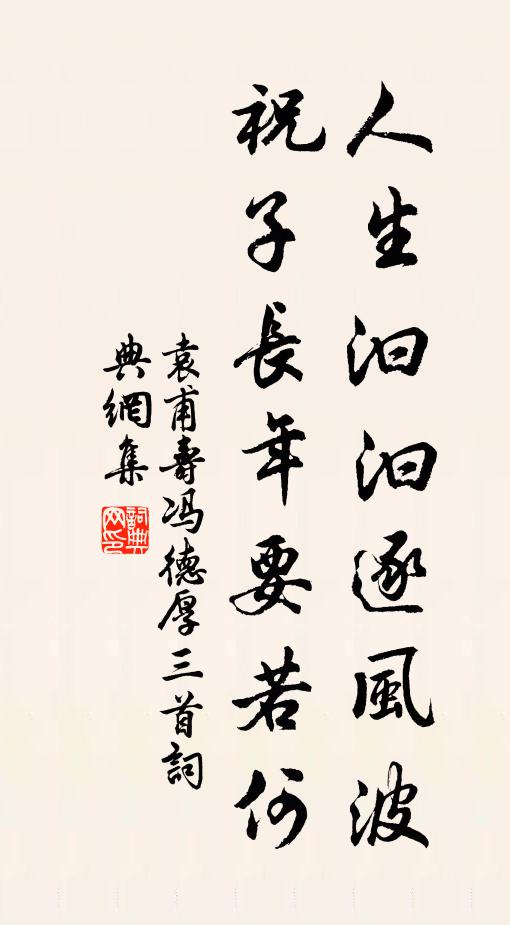 人生汩汩逐風波
祝子長年要若何
袁甫壽冯德厚三首詞
典網集
詞典
网印